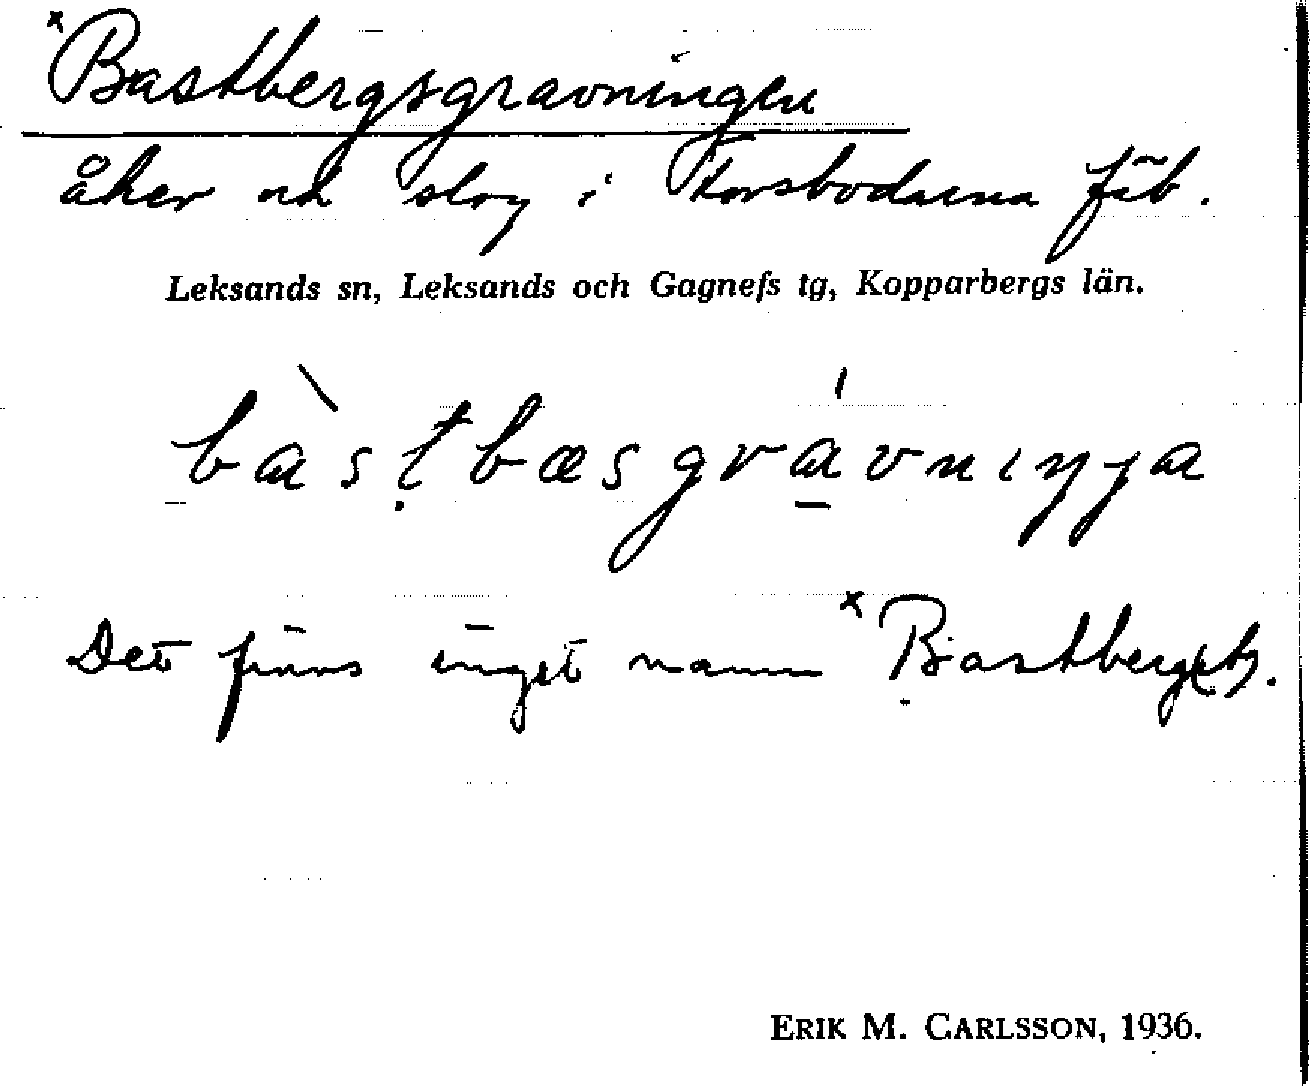 ×Bastbergsgravningen
åker och slog i Torsbodarna fäb.
Leksands sn, Leksands och Gagnefs tg, Kopparbergs län.
bàstbæsgrávnıŋja
Det finns inget namn ×Bastberget.
ERIK M. CARLSSON, 1936.